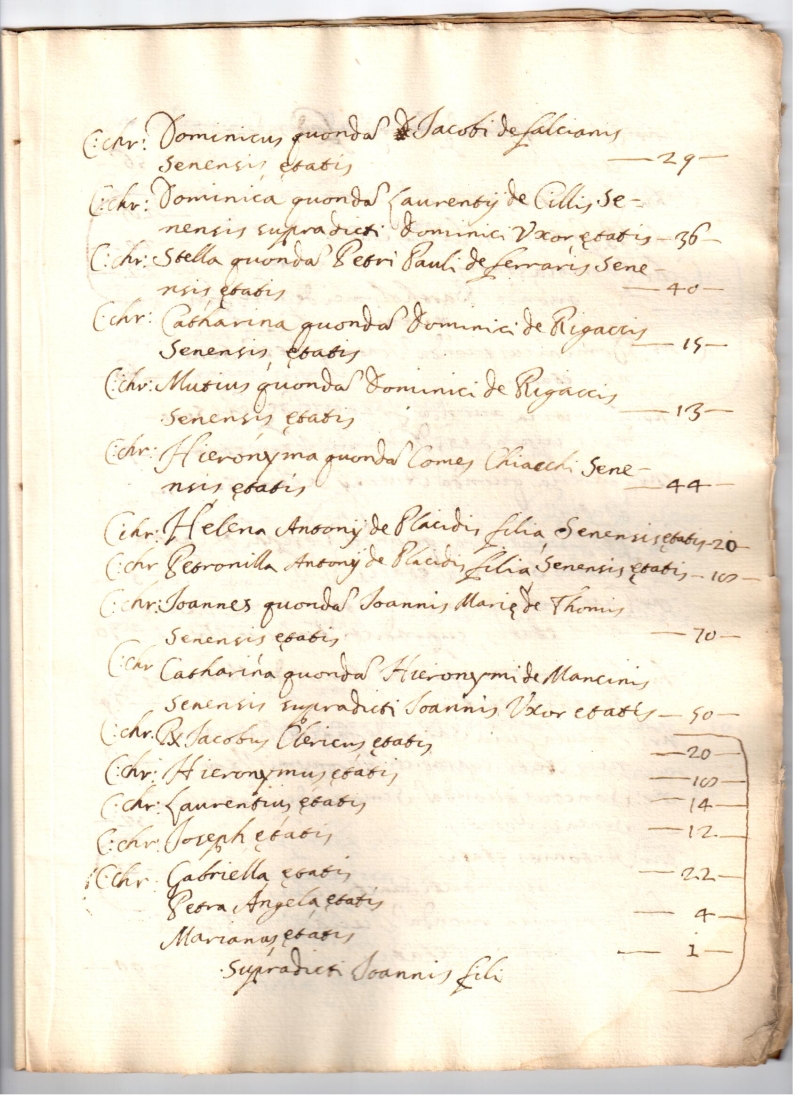 C: chr: Dominicus quonda Jacobi de Falcianis
Senensis ętatis — 29 —
C: chr: Dominica quonda Laurentij de Cillis Se-
nensis supradicti Dominici Vxor ętatis — 36 —
C: chr: Stella quonda Petri Pauli de Ferraris Sene
nsis ętatis — 40 —
C: chr: Catharina quonda Dominici de Rigaccis
Senensis ętatis — 15 —
C: chr: Mutius quonda Dominici de Rigaccis
Senensis ętatis — 13 —
C: chr: Hieronyma quonda Comes Chiacchi Sene-
nsis ętatis — 44 —
C: chr: Helena Antonij de Placidis filia Senensis ętatis - 20
C: chr Petronilla Antonij de Placidis filia Senensis ętatis — 18 —
C: chr: Joannes quonda Joannis Marię de Thomis
Senensis ętatis — 70 —
C: chr Catharina quonda Hieronymi de Mancinis
Senensis supradicti Joannis Vxor ętatis — 50 —
C: chr. Jacobus Clericus ętatis — 20 —
C: chr: Hieronymus ętatis — 18 —
C: chr: Laurentius ętatis — 14 —
C: chr: Joseph ętatis — 12 —
C: chr: Gabriella ętatis — 22 —
Petra Angela ętatis — 4 —
Marianas ętatis — 1 —
Supradicti Joannis fili